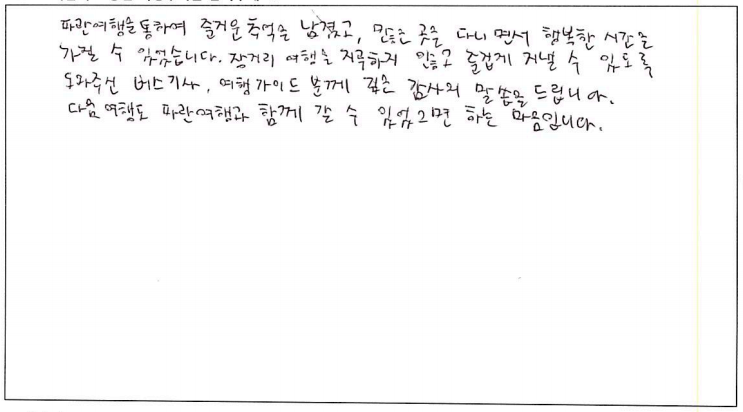 파란여행을 통하여 즐거운 추억을 남겼고, 많은 곳을 다니면서 행복한 시간을
가질 수 있었습니다. 장거리 여행을 지루하지 않고 즐겁게 지낼 수 있도록
도와주신 버스기사, 여행가이드 분께 깊은 감사의 말씀을 드립니다.
다음 여행도 파란여행과 함께 갈 수 있었으면 하는 마음입니다.